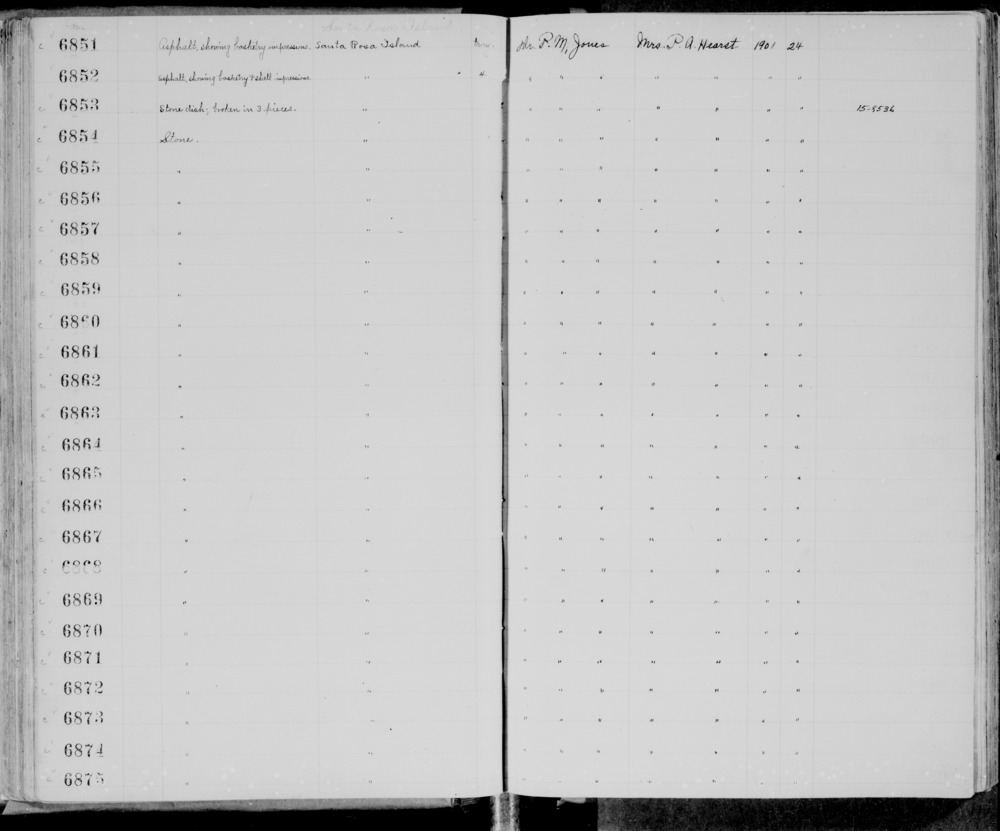 6851 Asphalt, showing basketry impressions. Santa Rosa Island Dr. P. M. Jones Mrs. P. A. Hearst 1901 24
6852 Asphalt, showing basketry & shell impressions " " 4. " " " " " " "
6853 Stone dish; broken in 3 pieces. " " " " " " " " 15-9536
6854 Stone. " " " " " " " "
6855 " " " " " " " " "
6856 " " " " " " " " "
6857 " " " " " " " " "
6858 " " " " " " " " "
6859 " " " " " " " " "
6860 " " " " " " " " "
6861 " " " " " " " " "
6862 " " " " " " " " "
6863 " " " " " " " " "
6864 " " " " " " " " "
6865 " " " " " " " " "
6866 " " " " " " " " "
6867 " " " " " " " " "
6868 " " " " " " " " "
6869 " " " " " " " " "
6870 " " " " " " " " "
6871 " " " " " " " " "
6872 " " " " " " " " "
6873 " " " " " " " " "
6874 " " " " " " " " "
6875 " " " " " " " " "